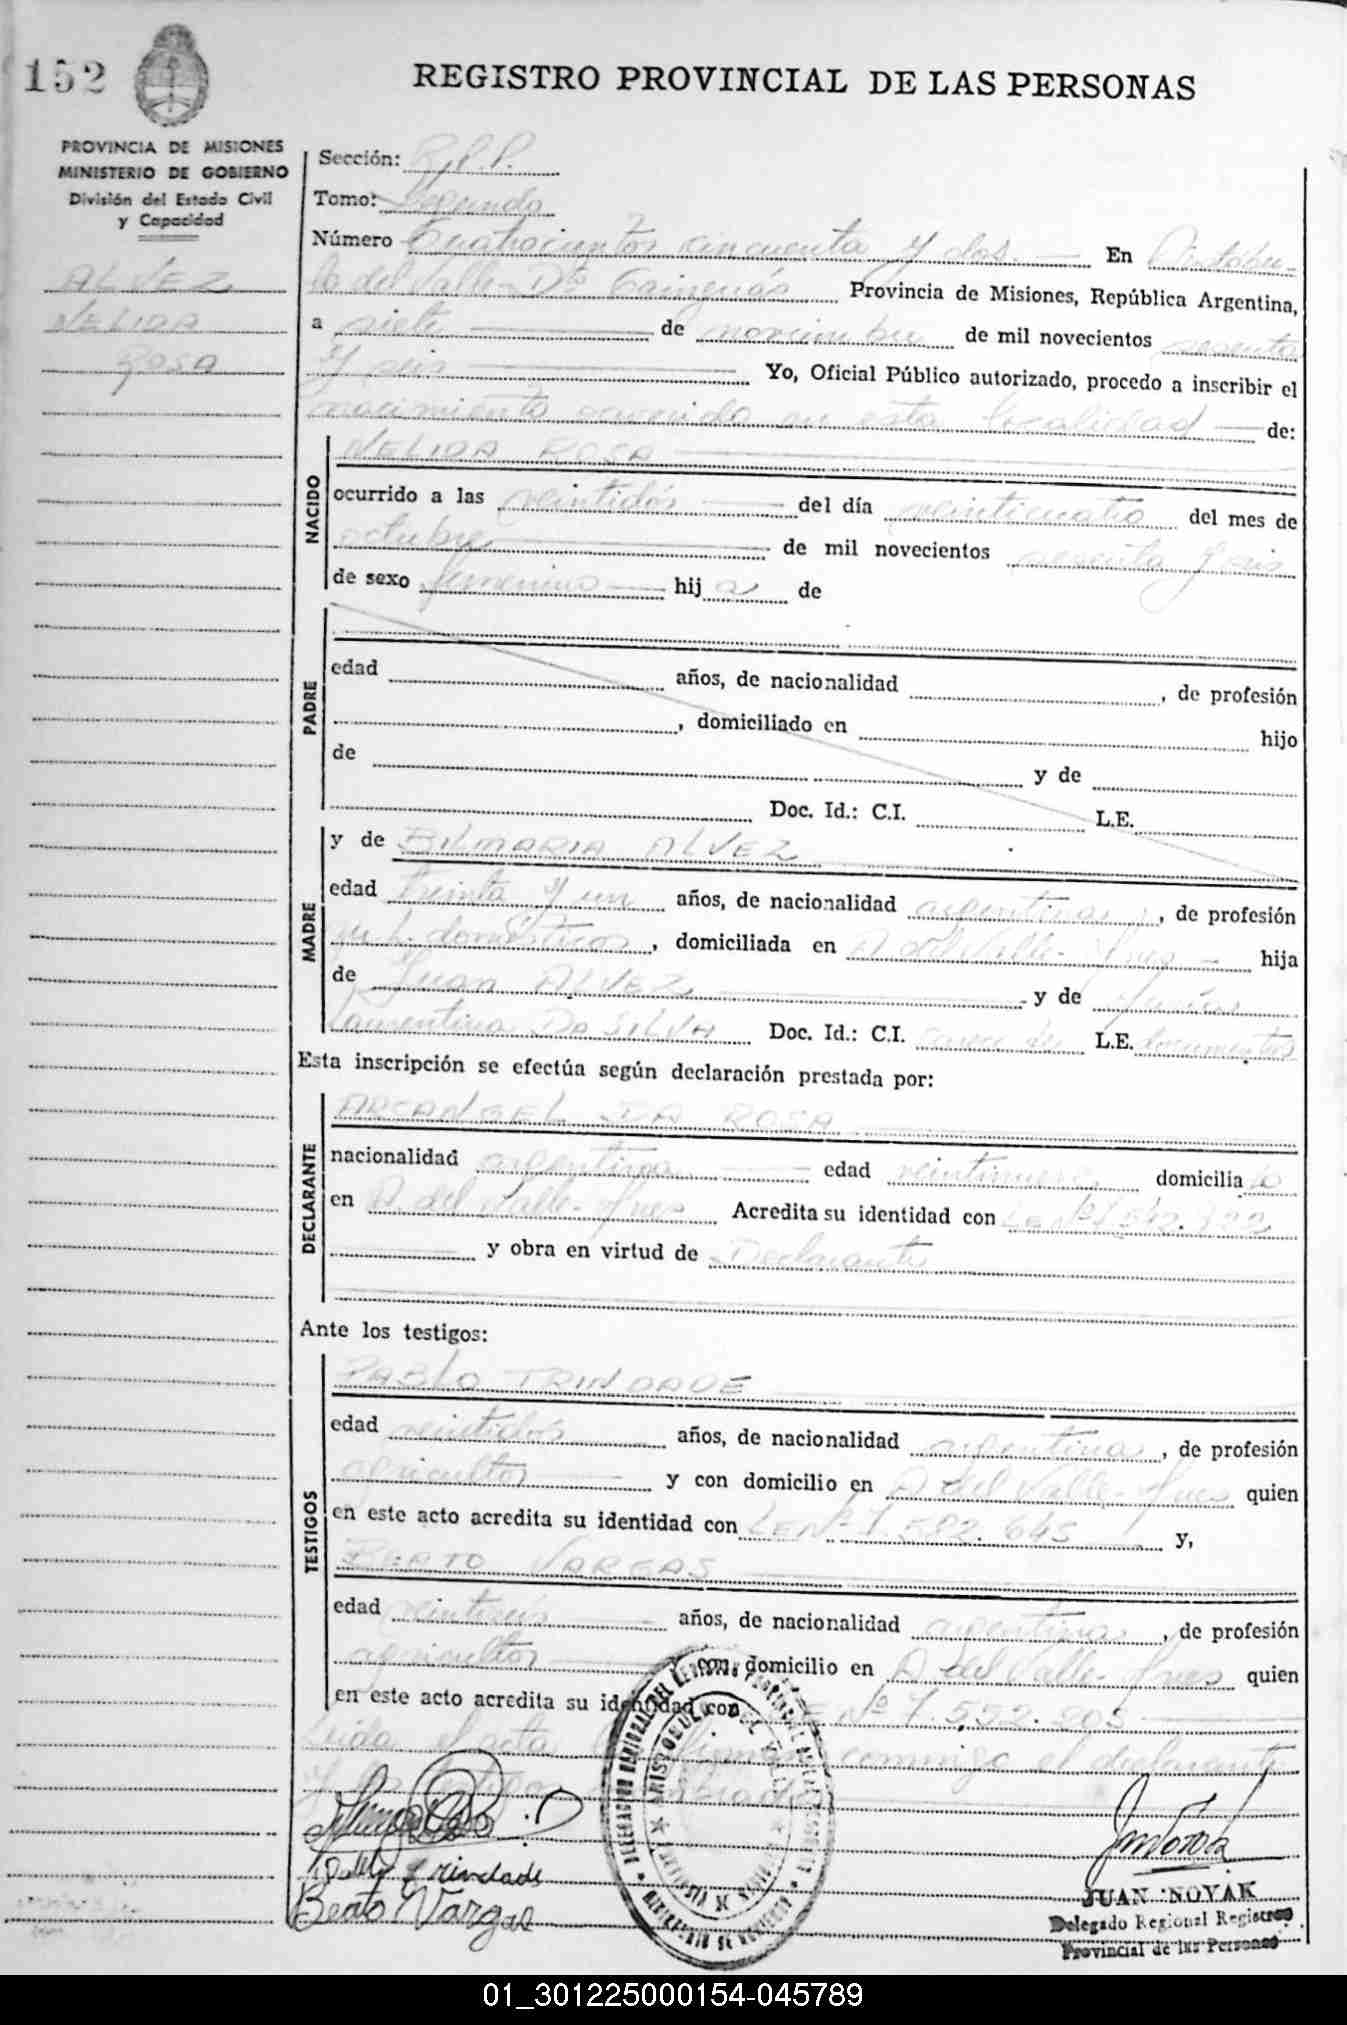 152
REGISTRO PROVINCIAL DE LAS PERSONAS
PROVINCIA DE MISIONES
MINISTERIO DE GOBIERNO
División del Estado Civil
y Capacidad
ALVEZ
NELIDA
ROSA
Sección: R.P.P.
Tomo: Segundo
Número Cuatrocientos cincuenta y dos. En Aristóbu-
lo del Valle- Dto Cainguás Provincia de Misiones, República Argentina,
a siete de noviembre de mil novecientos sesenta
y seis Yo, Oficial Público autorizado, procedo a inscribir el
nacimiento ocurrido en esta localidad de:
NACIDO
NELIDA ROSA
ocurrido a las veintidós del día veinticuatro del mes de
octubre de mil novecientos sesenta y seis
de sexo femenino hija de
PADRE
edad años, de nacionalidad , de profesión
, domiciliado en hijo
de y de
Doc. Id.: C.I. L.E.
MADRE
y de BILMARIA ALVEZ
edad treinta y un años, de nacionalidad argentina, de profesión
q. h. domésticos, domiciliada en A. del Valle- hija
de Juan ALVEZ y de
Laurentina DA SILVA Doc. Id.: C.I. carece de L.E. documentos
Esta inscripción se efectúa según declaración prestada por:
DECLARANTE
ARCANGEL DA ROSA
nacionalidad argentina edad veintinueve domicilia do
en A. del Valle- Acredita su identidad con LE Nº 7.542.
y obra en virtud de Declarante
Ante los testigos:
TESTIGOS
PABLO TRINDADE
edad veintidós años, de nacionalidad argentina, de profesión
agricultor y con domicilio en A. del Valle- quien
en este acto acredita su identidad con LE Nº 7.582.645 y,
BEATO VARGAS
edad años, de nacionalidad argentina, de profesión
agricultor con domicilio en A. del Valle- quien
en este acto acredita su identidad con LE Nº 7.552.205
Leida el acta la firman conmigo el declarante
y los testigos
Pablo Trindade
Beato Vargas
ARISTOBULO DEL VALLE
JUAN NOVAK
Delegado Regional Registro
Provincial de las Personas
01_301225000154-045789